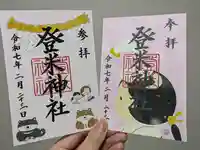 参拝
登米神社
令和七年二月二十二日
奉拝
登米神社
令和七年二月